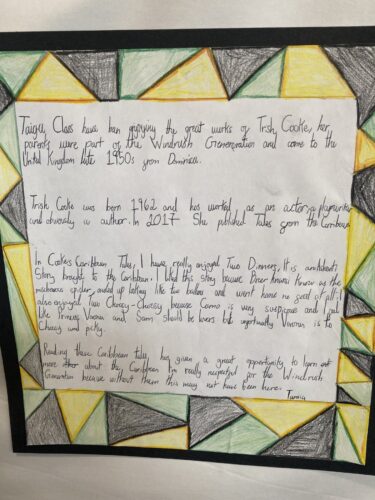 Taigu Class have been enjoying the great works of Trish Cooke, her
parents were part of the Windrush Greneration and come to the
United Kingdom late 1950s from Dominica.
Trish Cooke was born 1962 and has worked as an actor, playwriter
and obviously a author. In 2017 She published Tales from the Caribbean
In Cookes Caribbean Tales, I have really enjoyed Two Dinners. It is an
Story brought to the Caribbean. I liked this story because Bruer Anansi known as the
spider, ended up looking like two and went home no food at all. I
also enjoyed Two Choosy-Choosey because Como is very suspicious and I feel
like Princess Vivian and Sam should be lovers but unfortunatly Vivian is to
Choosy and picky.
Reading these Caribbean tales, has given a great opportunity to learn
more about the Caribbean. I'm really respectful for the Windrush
Generation because without them this may not have been here.